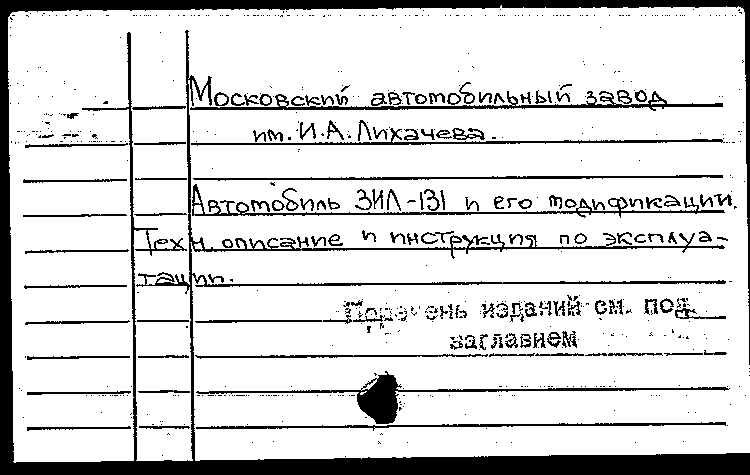 Московский автомобильный завод
им. И.А. Лихачева.
Автомобиль ЗИЛ-131 и его модификации.
Техн. описание и инструкция по эксплуа-
тации.
Перечень изданий см. под
заглавием